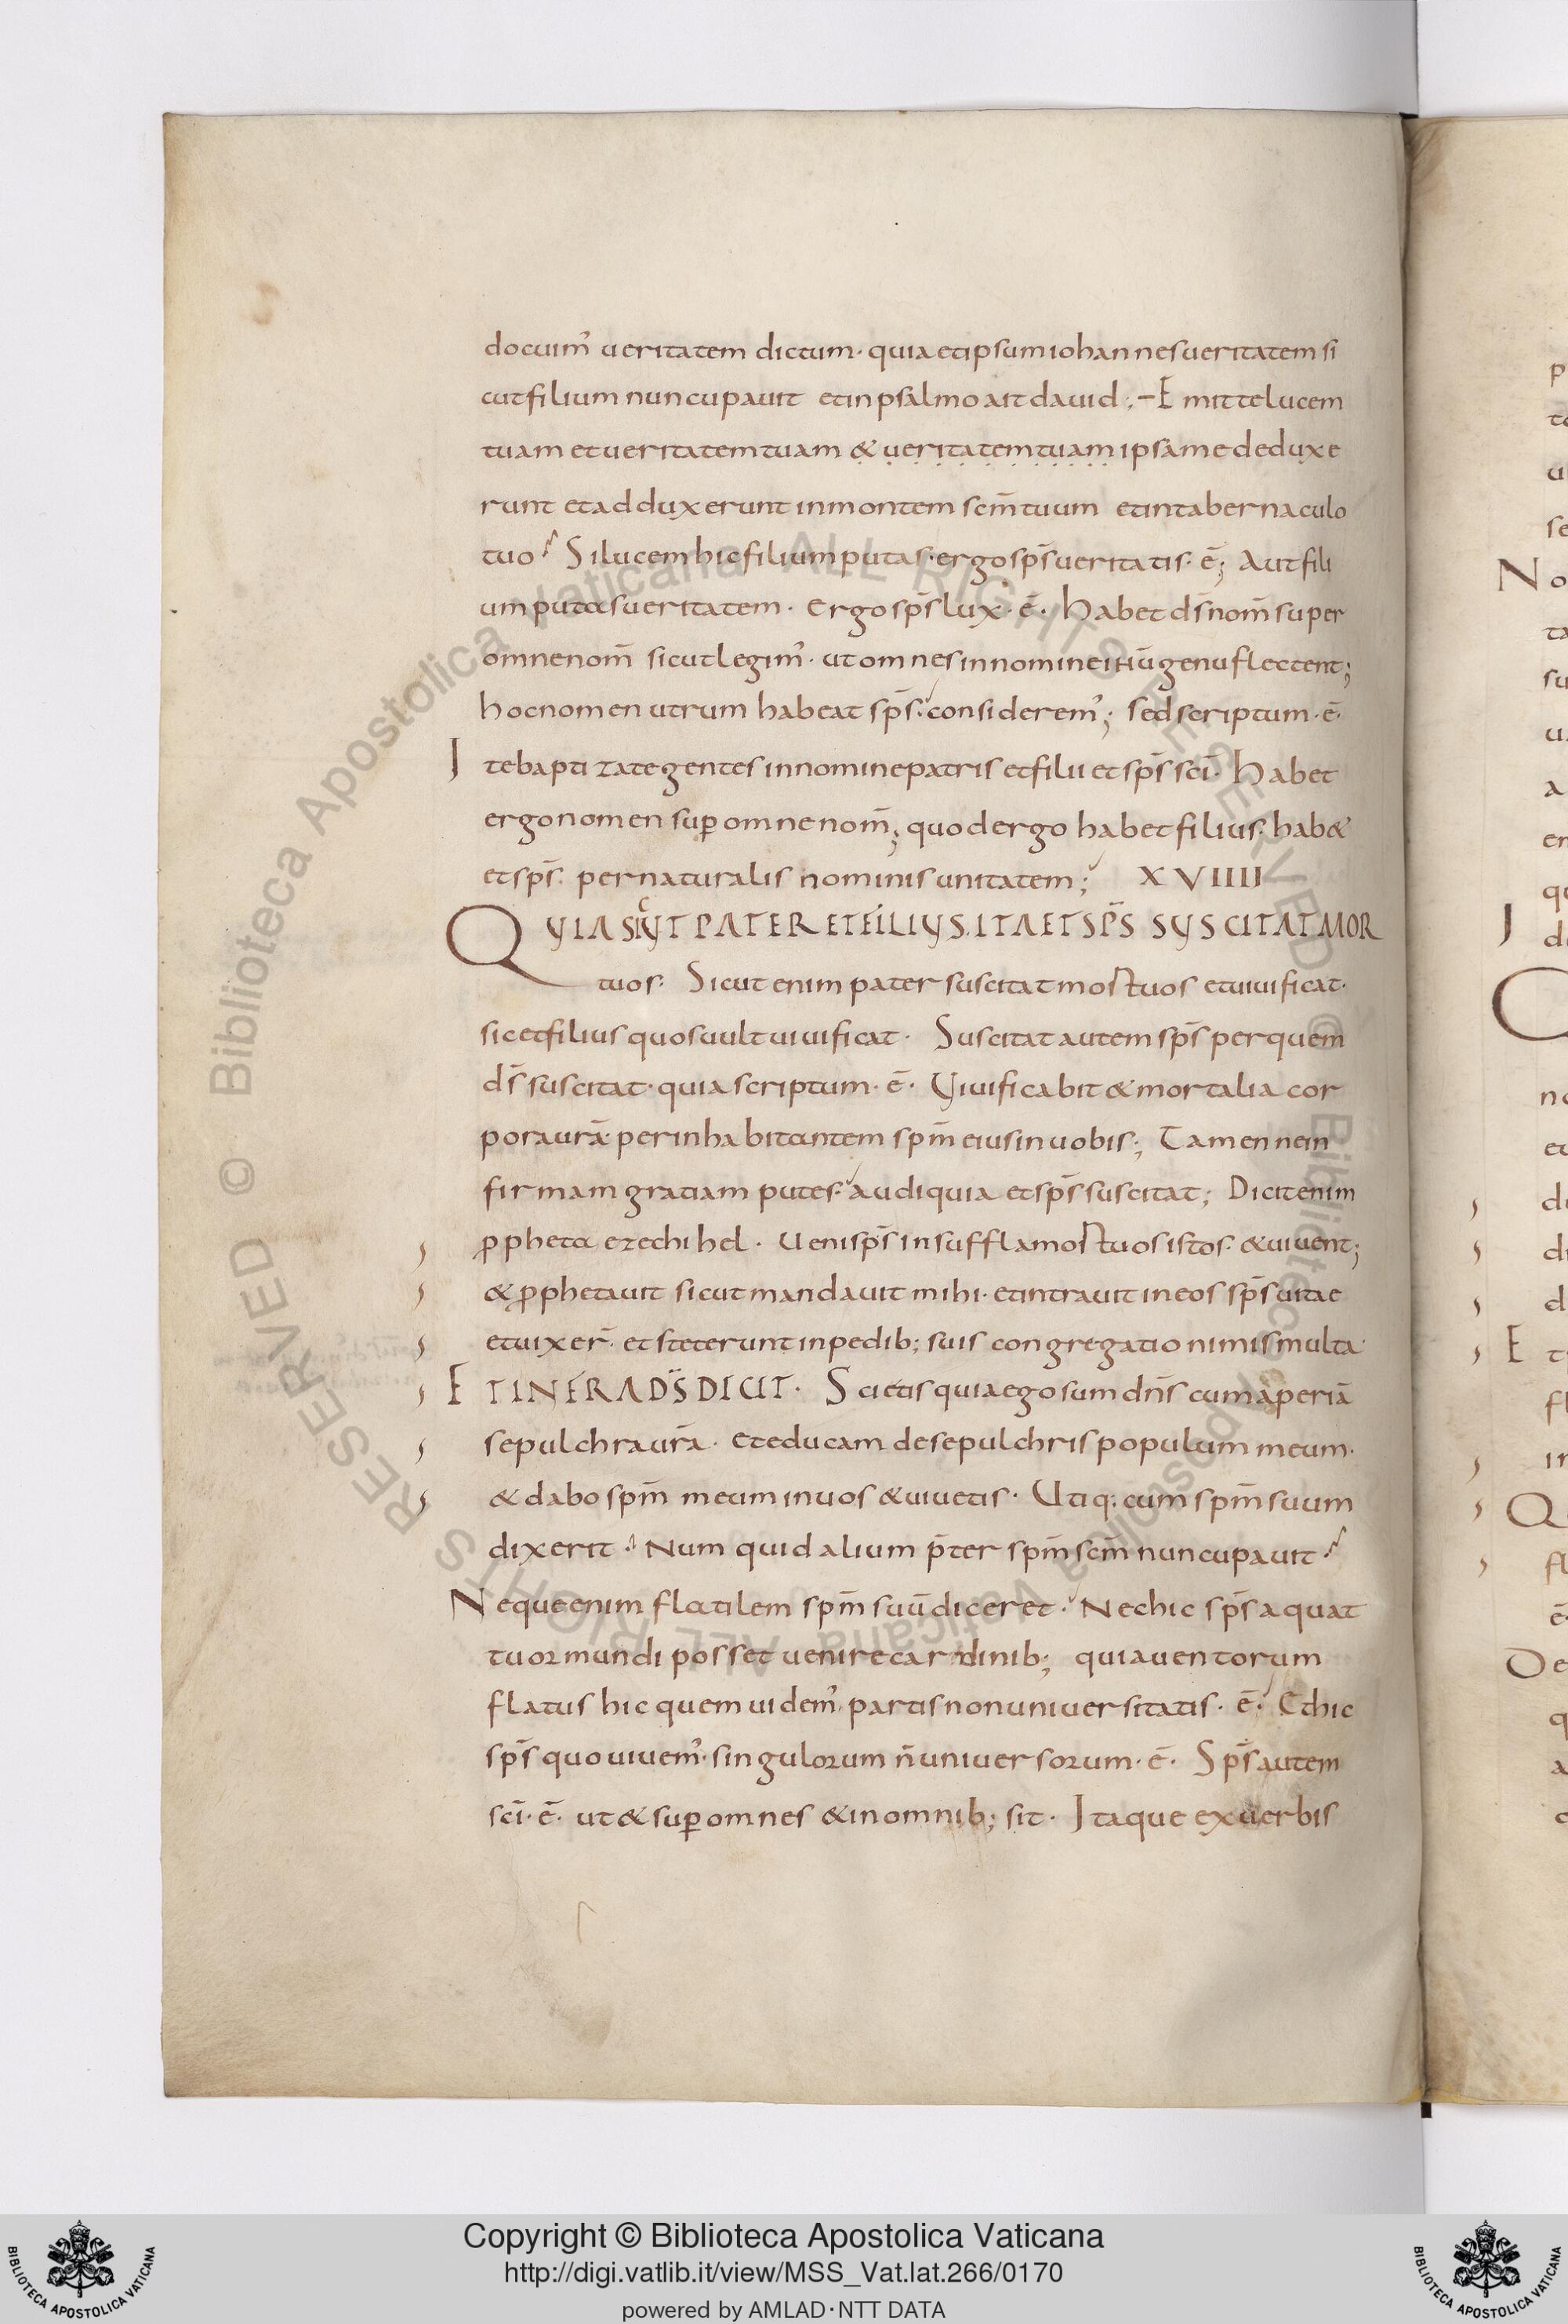 docuim᾽ ueritatem dictum· quia etipsum iohannes ueritatem si
cut filium nuncupauit et in psalmo ait dauid ;–E mitte lucem
tuam et ueritatem tuam & ueritatem tuam ipsa me deduxe
runt et adduxerunt in montem scm̄ tuum et in tabernaculo
tuo Si lucem hic filium putas· ergo sp̄s ueritatis· ē; Aut fili
um putas ueritatem· ergo sp̄s lux· ē· Habet ds̄ nom̄ super
omne nom̄ sicut legim᾽· ut omnes in nomine genu flectent;
hoc nomen utrum habeat sp̄s· considerem᾽; sed scriptum· ē·
Ite baptizate gentes in nomine patris et filii et sp̄s sci̅· Habet
ergo nomen sup̱ omne nom̄; quod ergo habet filius· hab&
et sp̄s· per naturalis nominis unitatem; XVIIII
QUIA SICUT PATER ET FILIUS· ITA ET SP̄S SUSCITAT MOR
tuos· Sicut enim pater suscitat mortuos et uiuificat·
sic et filius quos uult uiuificat· Suscitat autem sp̄s per quem
ds̄ suscitat· quia scriptum· ē· Uiuificabit & mortalia cor
pora urā· per inhabitantem spm̄ eius in uobis; Tamen ne in
firmam gratiam putes· audi quia et sp̄s suscitat; Dicit enim
ꝓpheta ezechihel· Ueni sp̄s insuffla mortuos istos· & uiuent;
& ꝓphetauit sicut mandauit mihi· et intrauit in eos sp̄s uitae
et uixer̄· et steterunt in pedib; suis congregatio nimis multa·
ET INFRA DS̄ DICIT· Scietis quia ego sum dn̄s cum aperiā
sepulchra ur̄a· et educam de sepulchris populum meum·
& dabo spm̄ meum in uos & uiuetis· Utiq; cum spm̄ suum
dixerit· Num quid alium p̄ter spm̄ scm̄ nuncupauit
Neque enim flatilem spm̄ suū diceret· Nec hic sp̄s a quat
tuor mundi posset uenire cardinib; quia uentorum
flatus hic quem uidem᾽ partis non uniuersitatis· ē· Et hic
sp̄s quo uiuem᾽· singulorum n̄ uniuersorum· ē· Sp̄s autem
sci̅· ē· ut & sup̱ omnes & in omnib; sit· Itaque ex uerbis
Copyright © Biblioteca Apostolica Vaticana
http://digi.vatlib.it/view/MSS_Vat.lat.266/0170
powered by AMLAD·NTT DATA